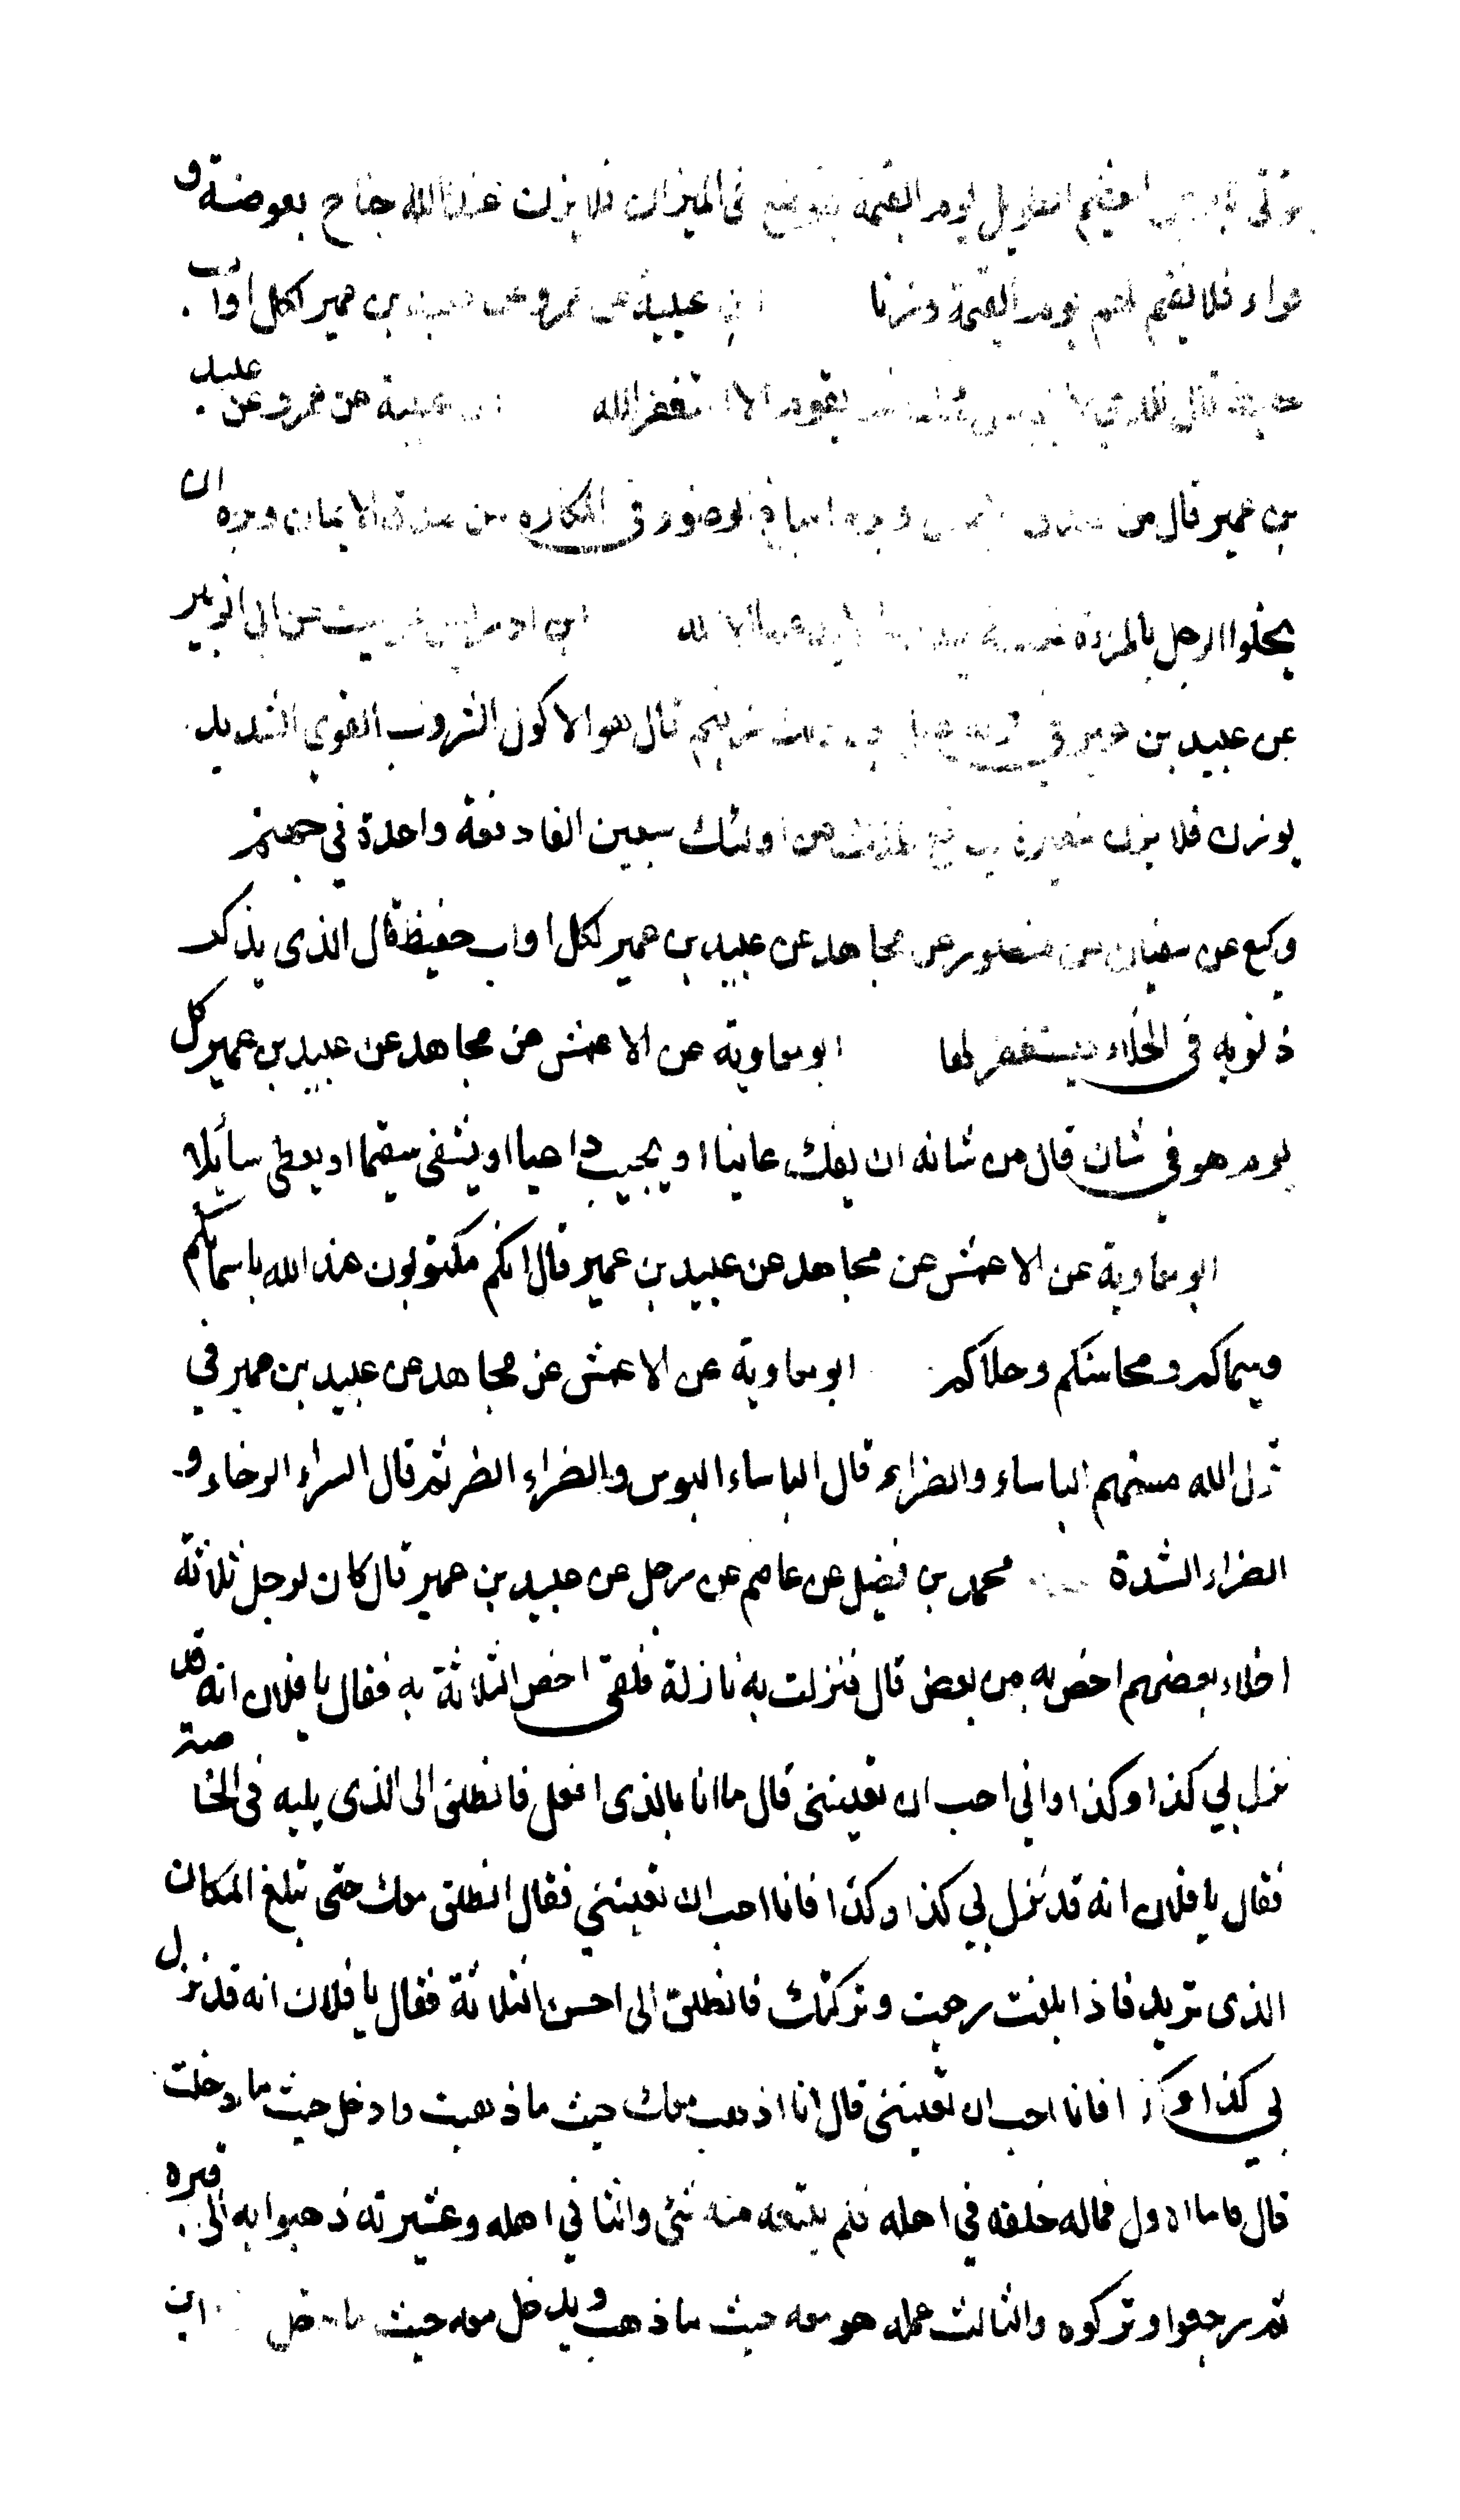 يؤتى بالرجل العظيم الطويل يوم القيمة فيوضع فى الميزان فلا يزن عند الله جناح بعوضة و
قراء فلا نقيم لهم يوم القيمة وزنا ابن عيينة عن عمرو عن عبيد بن عمير لكل اواب
حفيظ قال الذي لا يجلس مجلسا ثم يقوم الا استغفر الله ابن عيينة عن عمرو عن عبيد
بن عمير قال من صدق الايمان وبره اسباغ الوضوء فى المكاره من صدق الايمان وبره ان
يخلوا الرجل بالمرءة لا يدعها الا لله ابن ادريس عن ليث عن ابى الزبير
عن عبيد بن عمير فى قال هو الاكول الشروب القوي الشديد
يوزن فلا يزن شعيرة يدفع الملك من اولئك سبعين الفا دفعة واحدة في جهنم
وكيع عن سفيان عن منصور عن مجاهد عن عبيد بن عمير لكل اواب حفيظ قال الذى يذكر
ذنوبه فى الخلاء فيستغفر لها ابو معاوية عن الاعمش عن مجاهد عن عبيد بن عمير كل
يوم هو فى شان قال من شانه ان يفك عانيا او يجيب داعيا او يشفى سقيما او يعطى سايلا
ابو معاوية عن الاعمش عن مجاهد عن عبيد بن عمير قال انكم مكتوبون عند الله باسمائكم
وسيماكم ومحاسنكم وحلاكم ابو معاوية عن الاعمش عن مجاهد عن عبيد بن عمير في
قول الله مستهم الباساء والضراء قال الباساء البوس والضراء الضر ثم قال السراء الرخاء و
الضراء الشدة محمد بن فضيل عن عاصم عن رجل عن عبيد بن عمير قال كان لرجل ثلاثة
اخلاء بعضهم اخص به من بعض قال فنزلت به نازلة فلقى اخص الثلاثة به فقال يا فلان انه قد
نزل بي كذا وكذا وانى احب ان تعينني قال ما انا بالذى افعل فانطلق الى الذى يليه فى الخاصة
فقال يا فلان انه قد نزل بي كذا وكذا فانا احب ان تعينني فقال انطلق معك حتى تبلغ المكان
الذى تريد فاذا بلغت رجعت وتركتك فانطلق الى اخس الثلاثة فقال يا فلان انه قد نزل
بي كذا وكذا فانا احب ان تعينني قال انا اذهب معك حيث ما ذهبت وادخل حيث ما دخلت
قال فاما الاول فماله خلفه في اهله فلم يتبعه منه شئ والثاني اهله وعشيرته ذهبوا به الى قبره
ثم رجعوا وتركوه والثالث عمله هو معه حيث ما ذهب ويدخل معه حيث ما دخل ابن